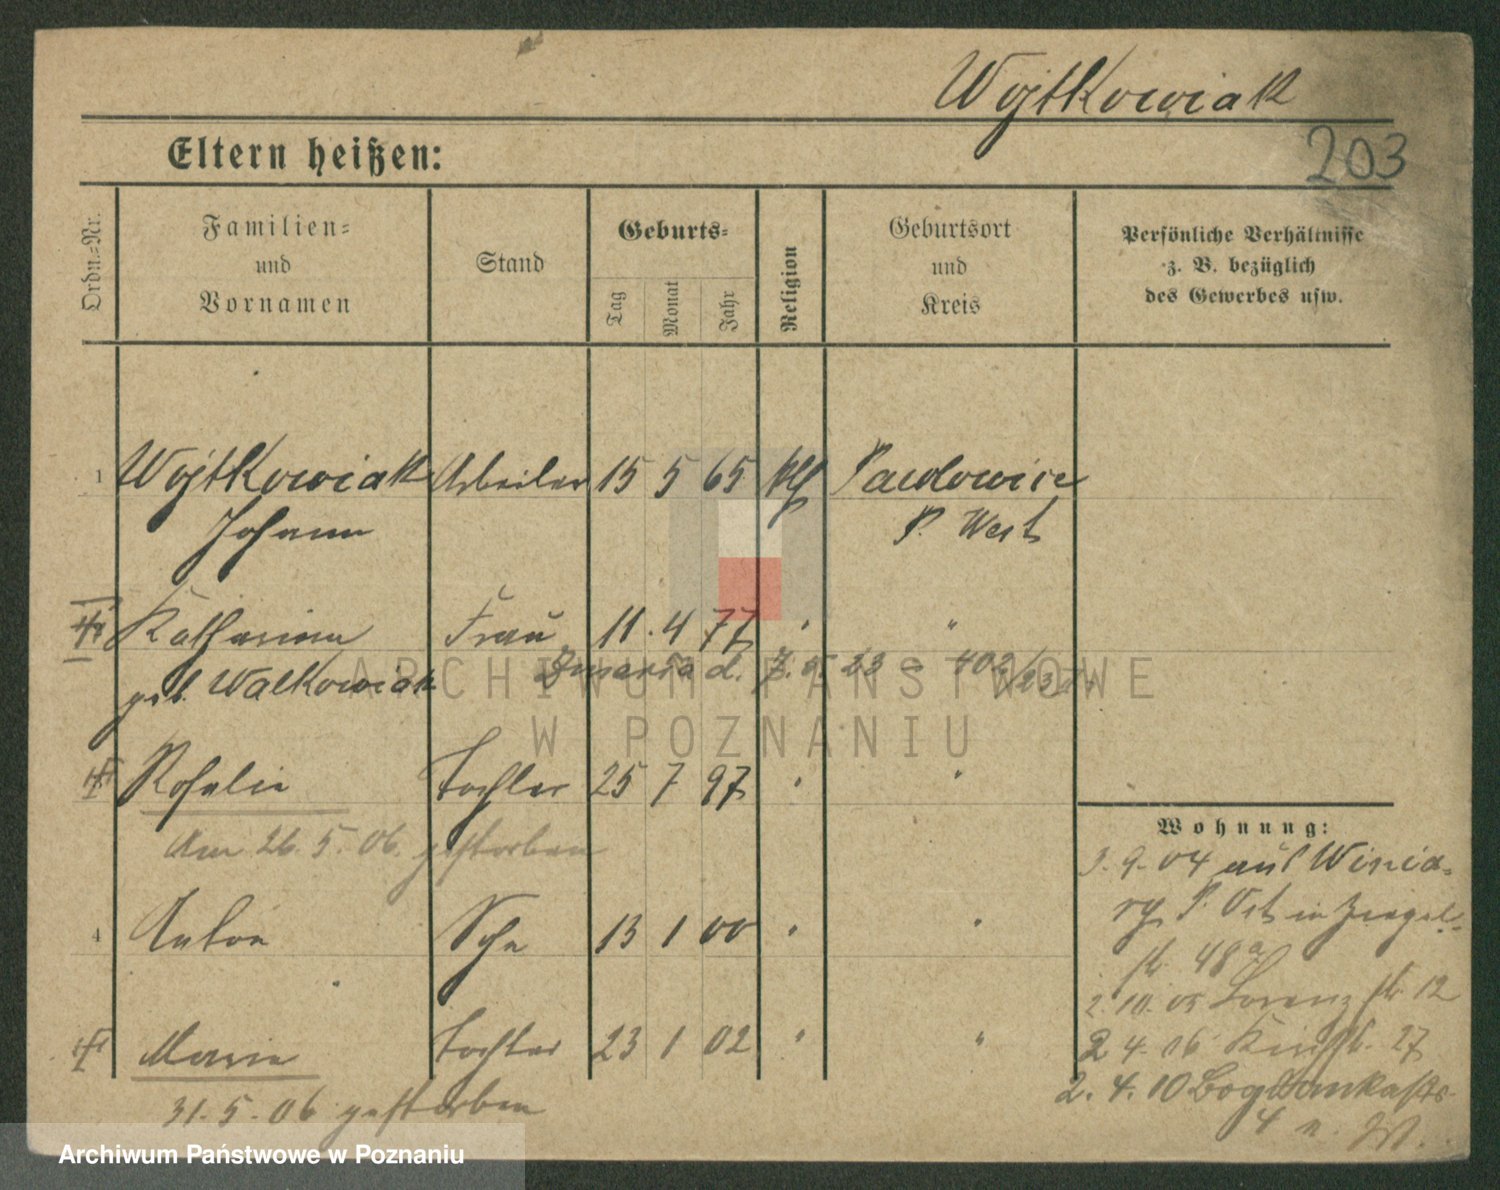 Wojtkowiak
203
Eltern heißen:
Ordn.=Nr.
Familien=
und
Vornamen
Stand
Geburts=
Tag
Monat
Jahr
Religion
Geburtsort
und
Kreis
Persönliche Verhältnisse
z. B. bezüglich
des Gewerbes usw.
1 Wojtkowiak Arbeiter 15 5 65 kth Pawlowice
Johann P. West
Katharina Frau 11. 4 77 " "
geb. Walkowiak
Zmarła d. 23 402/23
Rosalie Tochter 25 7 97 " "
Am 26. 5. 06. gestorben
4 Anton Sohn 13 1 00 " "
Marie Tochter 23 1 02 " "
31. 5. 06 gestorben
Wohnung:
3. 9. 04 auf Winia=
ry P. Ost in Ziegel=
str 48a
2. 10. 05 Lorenzstr 12
2 4. 06 27
2. 4. 10 Bogdankastr
4 n. W.
ARCHIWUM PAŃSTWOWE
W POZNANIU
Archiwum Państwowe w Poznaniu